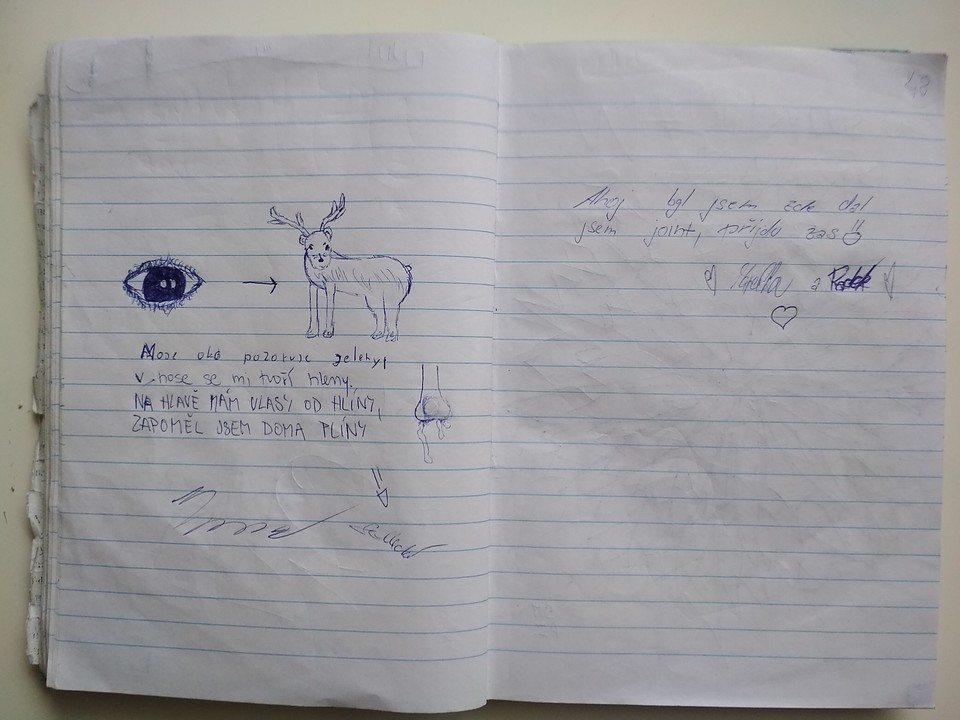 Moje oko pozoruje jeleny,
v nose se mi tvoří hleny.
NA HLAVĚ MÁM VLASY OD HLÍNY,
ZAPOMĚL JSEM DOMA PLÍNY
48
Ahoj byl jsem zde dal
jsem joint, přijdu zas
a Radek